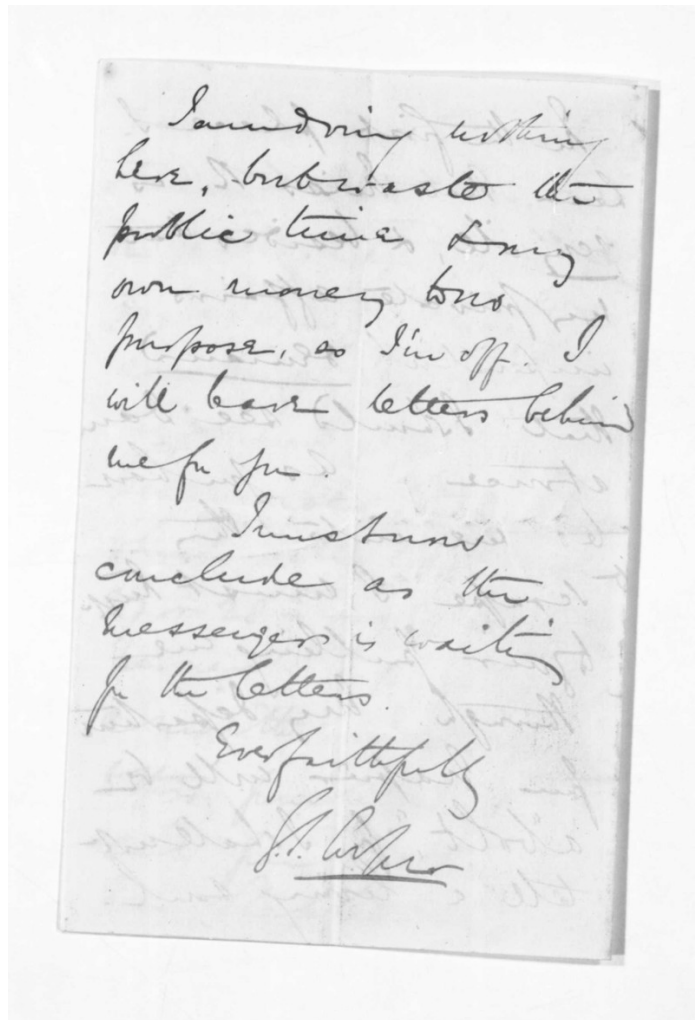 I am doing nothing
here, but waste the
public time & my
own money to no
purpose, so I'm off. I
will leave letters behind
me for you.
I must now
conclude as the
messenger is waiting
for the letters.
Ever faithfully
G. S. Cooper